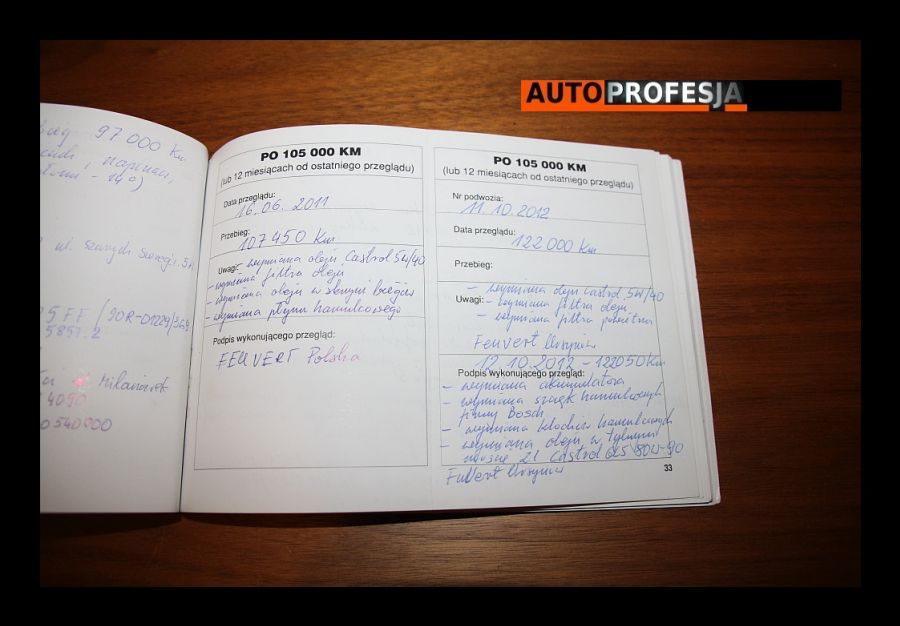 AUTOPROFESJA
97 000 km
PO 105 000 KM
(lub 12 miesiącach od ostatniego przeglądu)
Data przeglądu:
16.06.2011
Przebieg:
107450 km
Uwagi: - wymiana oleju Castrol 5W/40
- wymiana filtra oleju
- wymiana oleju w skrzyni biegów
- wymiana płynu hamulcowego
Podpis wykonującego przegląd:
FEUVERT Polska
PO 105 000 KM
(lub 12 miesiącach od ostatniego przeglądu)
Nr podwozia:
11.10.2012
Data przeglądu:
122 000 km
Przebieg:
- wymiana oleju castrol 5W/40
Uwagi: - wymiana filtra oleju
- wymiana filtra powietrza
Feuvert Ursynów
12.10.2012 - 122050 km
Podpis wykonującego przegląd:
- wymiana akumulatora
- wymiana szczęk hamulcowych
firmy Bosch
- wymiana klocków hamulcowych
- wymiana oleju w tylnym
moście 2l Castrol 80W-90
FeuVert Ursynów
33
ul. Szarych
5FF/90R-01229/
5851.2
4090
0540000